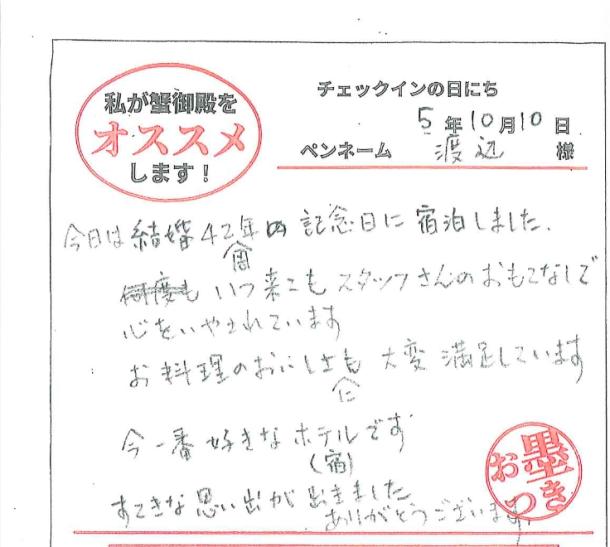 私が蟹御殿を
オススメ
します！
チェックインの日にち
5年10月10日
ペンネーム 渡辺 様
今日は結婚42年周記念日に宿泊しました.
いつ来てもスタッフさんのおもてなしで
心をいやされています
お料理のおいしさにも大変満足しています
今一番好きなホテルです
(宿)
すてきな思い出が出きました
ありがとうございます.
お墨つき